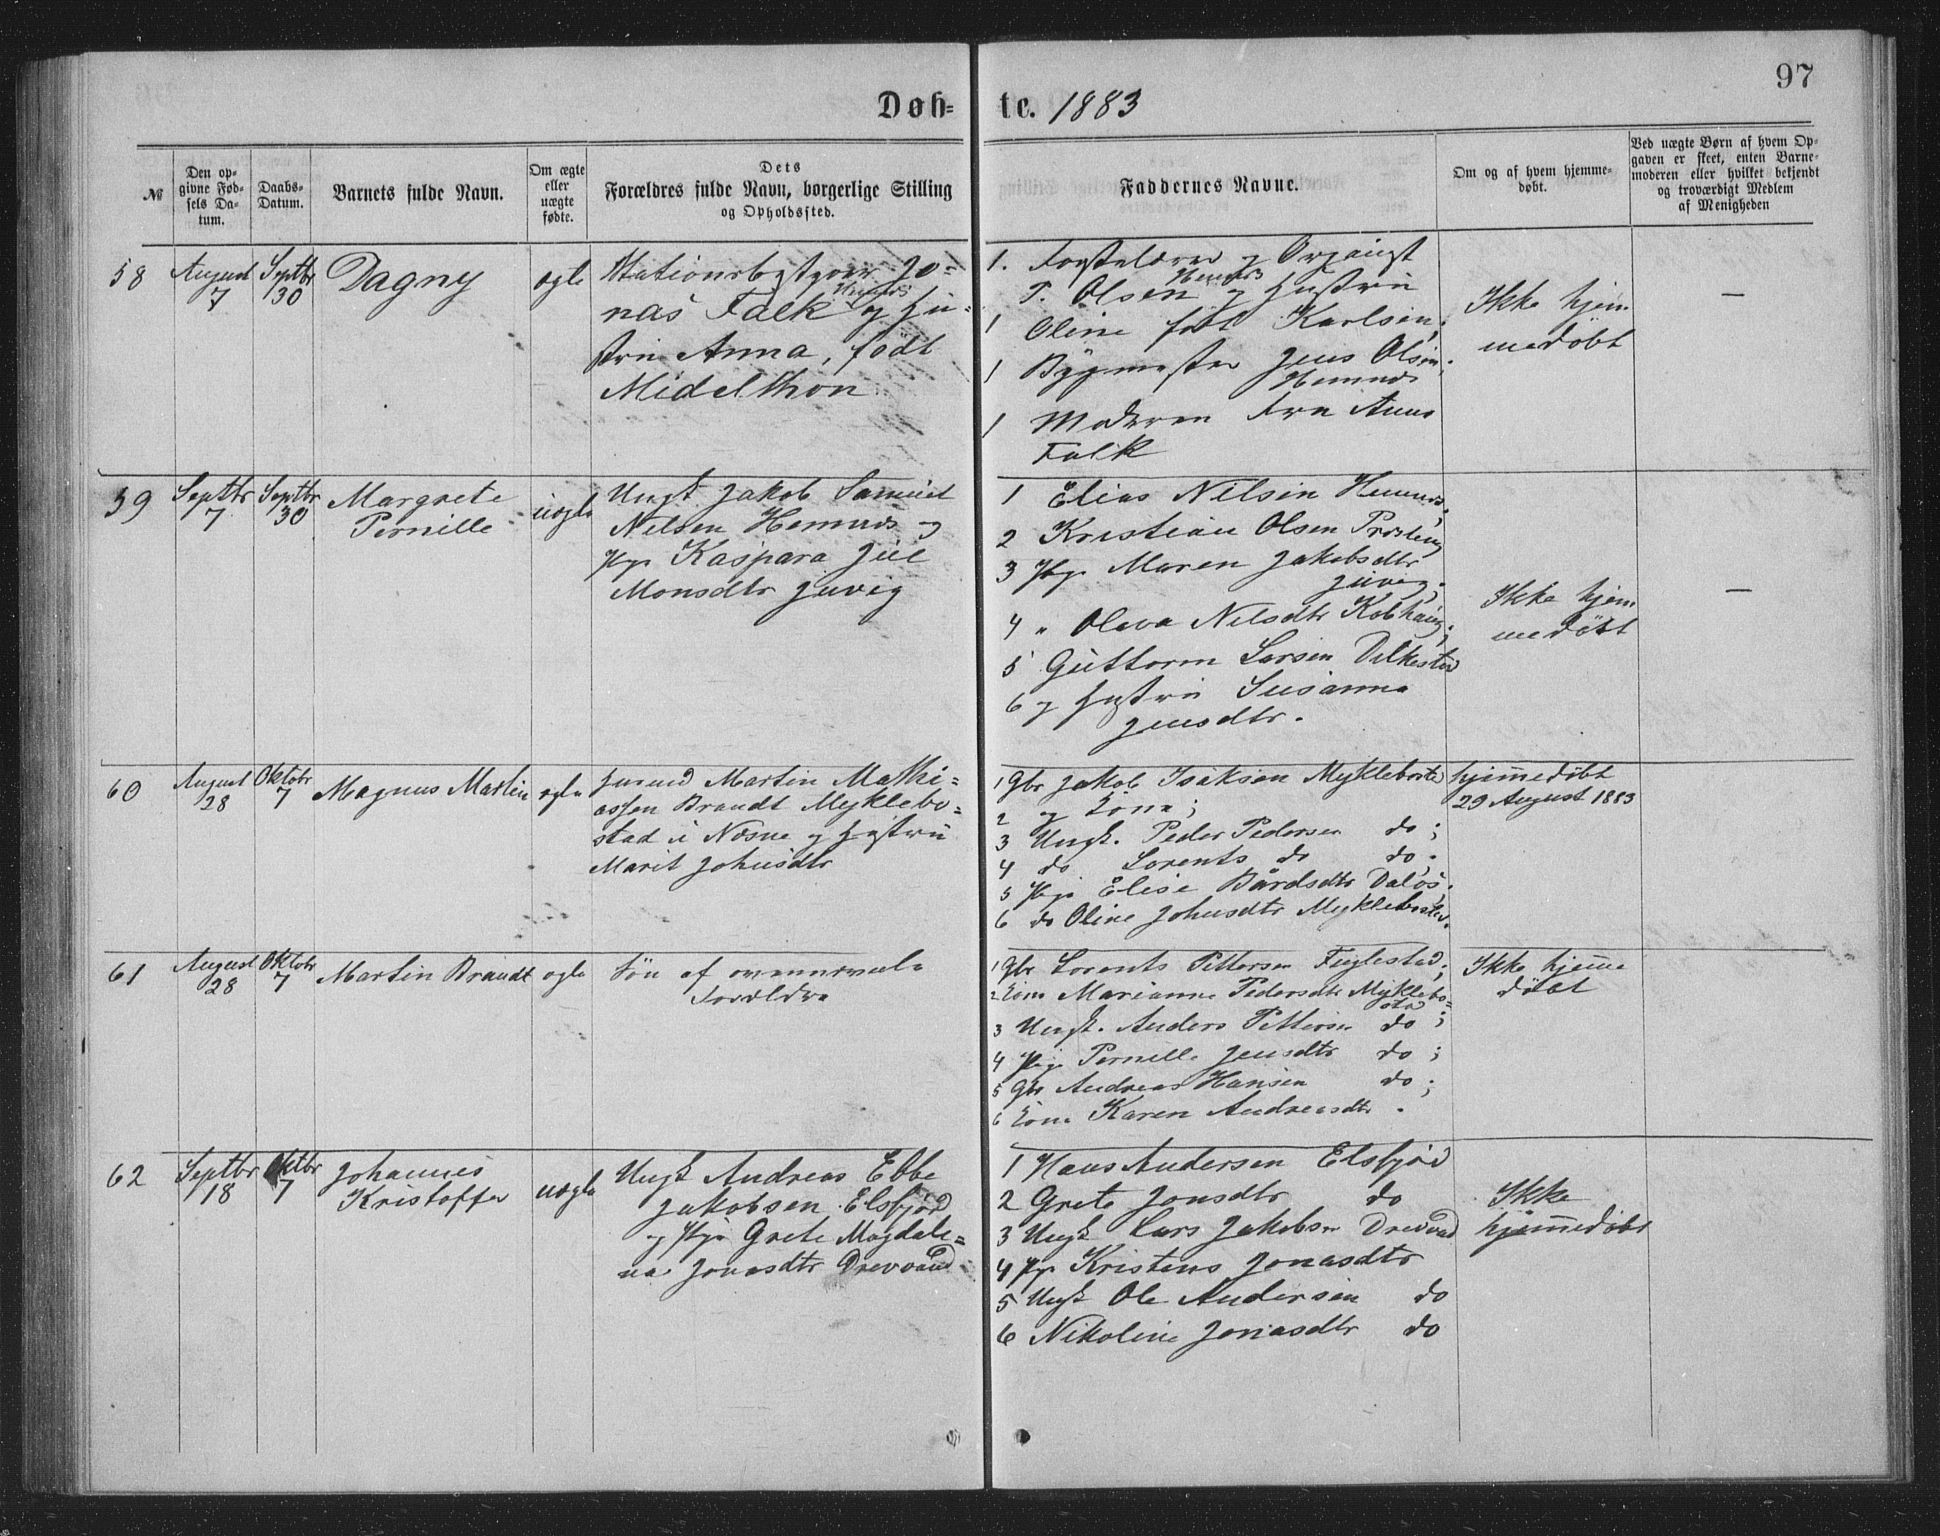 97
Døb= te. 1883
№
Den op-
givne Fød-
sels Da-
tum.
Daabs-
Datum.
Barnets fulde Navn.
Om ægte
eller
uægte
fødte.
Dets
Forældres fulde Navn, borgerlige Stilling
og Opholdssted.
Faddernes Navne.
Om og af hvem hjemme-
døbt.
Ved uægte Børn af hvem Op-
gaven er skeet, enten Barne-
moderen eller hvilket bekjendt
og troværdigt Medlem
af Menigheden
58
August
7
Septbr
30
Dagny
ægte
Jo=
Hemnes
nas Falk og Hu=
stru Anna, født
Midelthon
1. og Organist
Hemnes
T. Olsen og Hustru
1 Oline født Karlsen,
1 Bygmester Jens Olsen.
Hemnes
1 Moderen Fru Anna
Falk
Ikke hjem
medøbt
—
59
Septbr
7
Septbr
30
Margrete
Pernille
uægte
Ungk Jakob Samuel
Nilsen Hemnes og
Pige Kaspara Juel
Monsdtr Juvig
1 Elias Nilsen Hemnes,
2 Kristian Olsen
3 Pige Maren Jakobsdtr
Juvig,
4 " Oleva Nilsdtr
5 Guttorm Larsen
6 og Hustru Susanna
Jensdtr.
Ikke hjem
medøbt
—
60
August
28
Oktobr
7
Magnus Martin
ægte
Husmd Martin Mathi=
assen Brandt Myklebo=
stad i Næsne og Hustru
Marit Johnsdtr
1 Gbr Jakob Isaksen Myklebostd
2 og Kone;
3 Ungk. Peder Pedersen do;
4 do Lorents do do.
5 Pige Elise Bårdsdtr Daløs.
6 do Oline Johnsdtr Myklebostad.
hjemmedøbt
29 August 1883
61
August
28
Oktobr
7
Martin Brandt
ægte
Søn af ovennævnte
Forældre
1 Gbr Lorents Pettersen Fuglestad;
2 Kone Marianne Pedersdtr Myklebo=
stad
3 Ungk. Anders Pettersen do;
4 Pige Pernille Jensdtr do;
5 Gbr Andreas Hansen do;
6 Kone Karen Andreasdtr.
Ikke hjemme
døbt
62
Septbr
18
Oktbr
7
Johannes
Kristoffer
uægte
Ungk Andreas Ebbe
Jakobsen Elsfjord
og Pige Grete Magdale=
na Jonasdtr Drevvand
1 Hans Andersen Elsfjord
2 Grete Jonsdtr do
3 Ungk Lars Jakobsen Drevvad
4 Pige Kristens Jonasdtr
5 Ungk Ole Andersen do
6 Nikoline Jonasdtr do
Ikke
hjemmedøbt